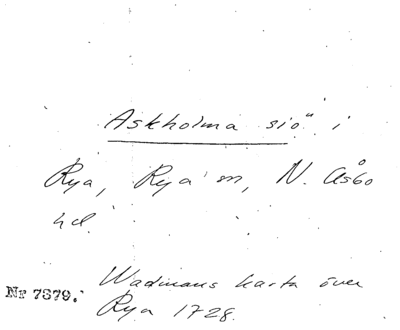 Askholma siö" i
Rya, Rya sn, N. Åsbo
hd.
Wadmans karta över
Nr 7379. Rya 1728.